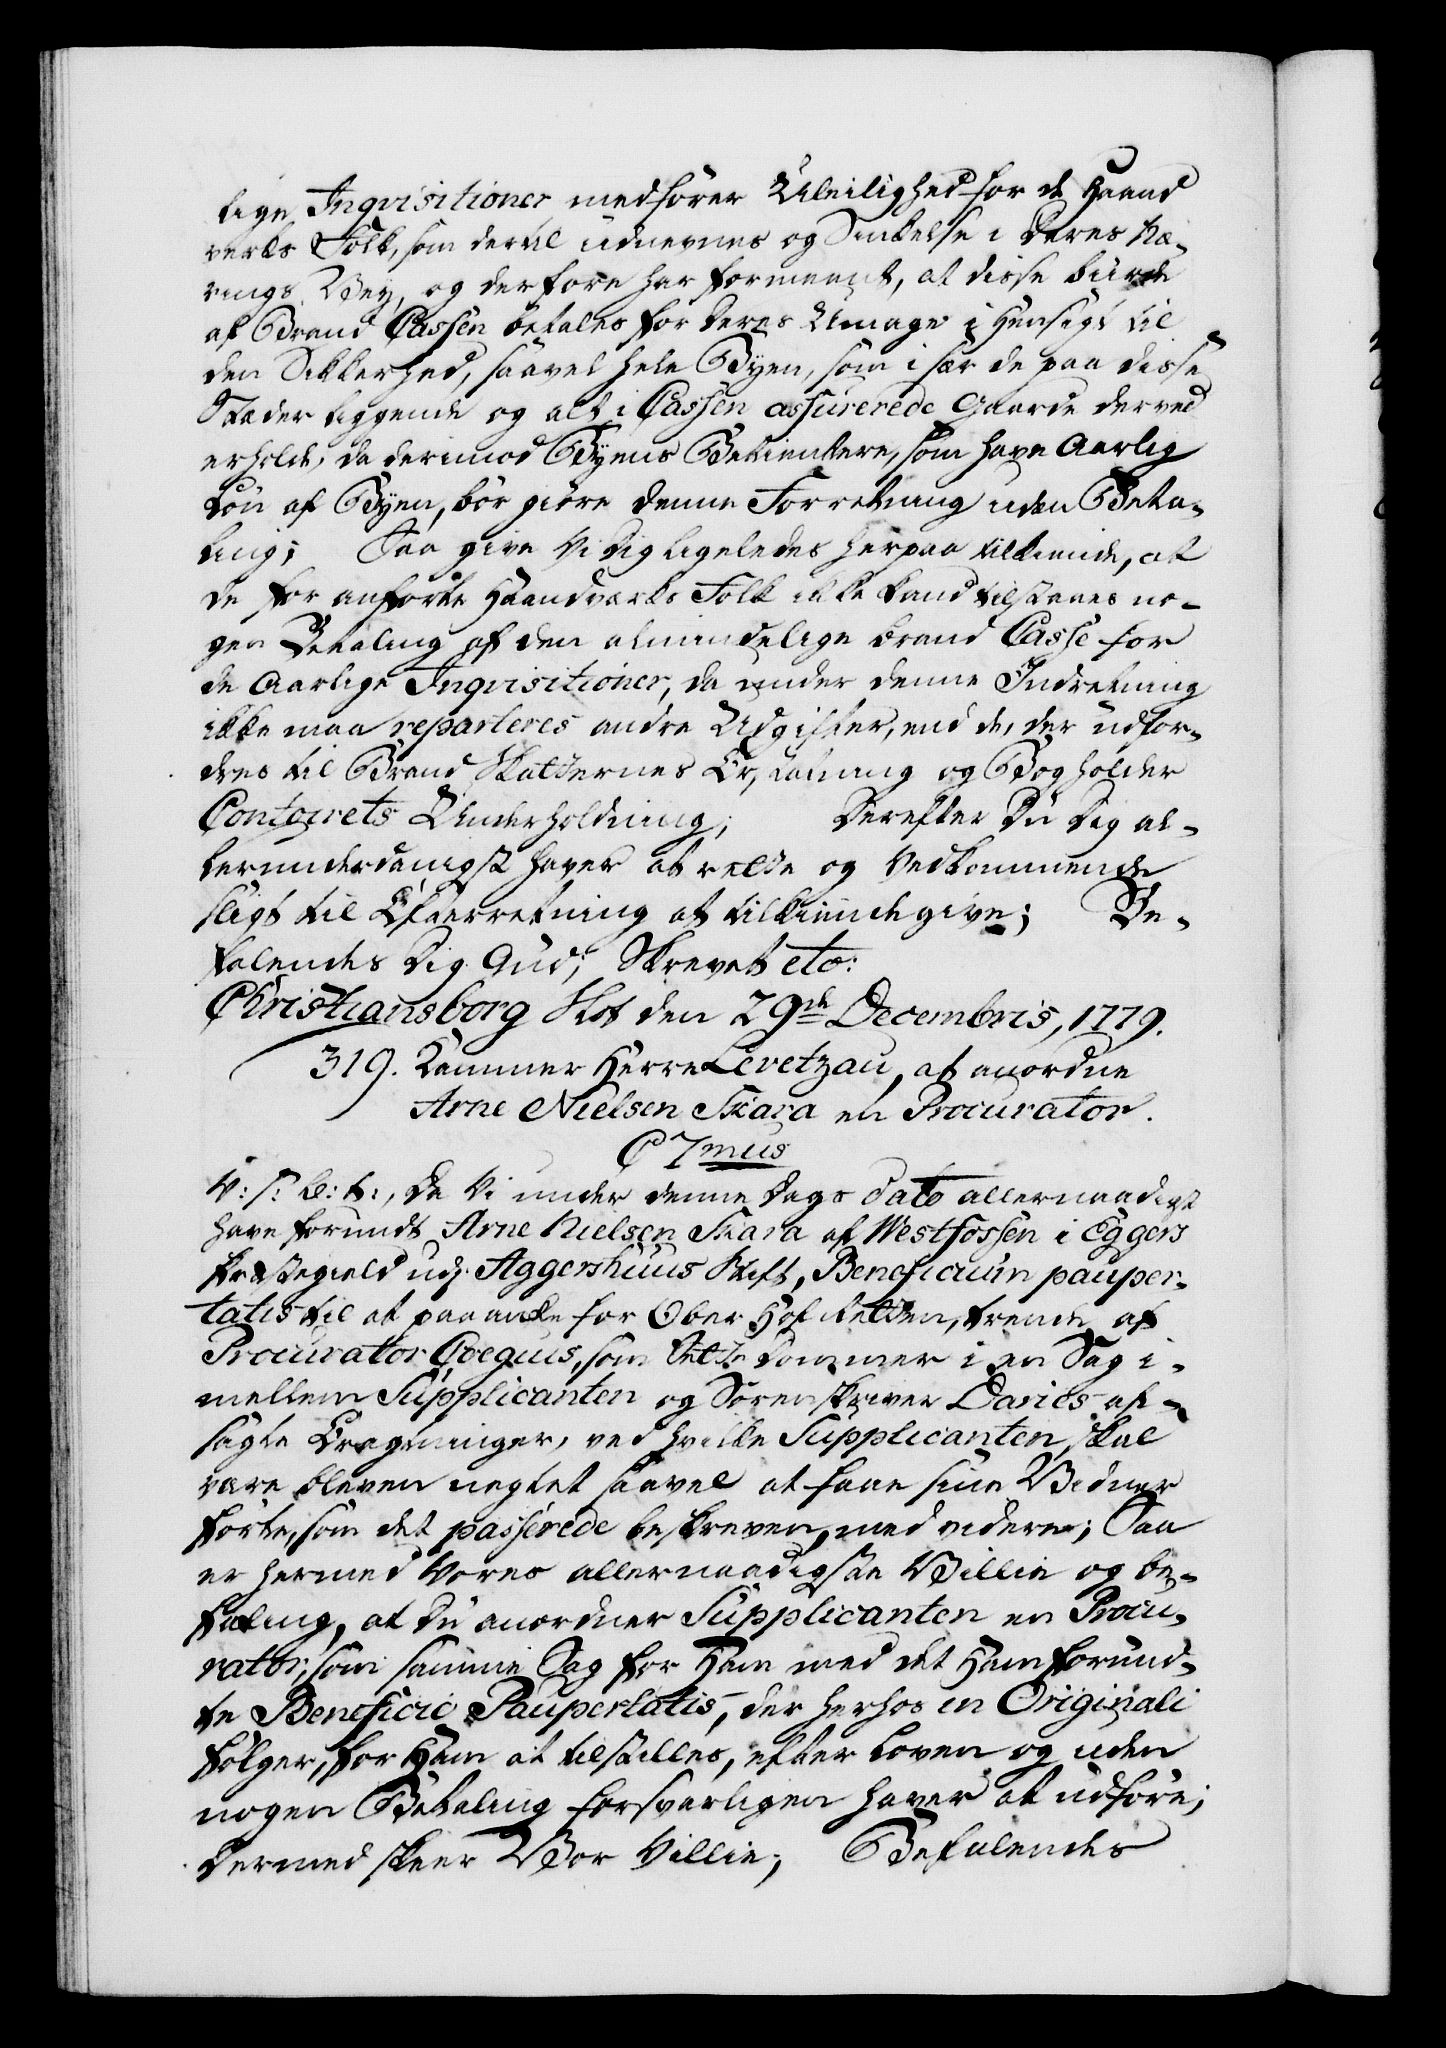 lige Inqvisitioner medfører Uleilighed for de Haand
verks Folk, som dertil udnevnes og Sinkelse i deres Næ-
rings Vey, og derfore har formeent, at disse burde
af Brand Cassen betales for deres Umage i Hensigt til
den Sikkerhed, saavel hele Byen, som i sær de paa disse
Stæder liggende og alt i Cassen assurerede Gaarde derved
erholde, da derimod Byens Betientere, som have Aarlig
Løn af Byen, bør giøre denne Forretning uden Beta-
ling; Saa give Vi Dig ligeledes herpaa tilkiende, at
de for anførte Haandværks Folk ikke kand tilstaaes no-
gen Betaling af den almindelige brand Casse for
de Aarlige Inqvisitioner, da under denne Indretning
ikke maa reparteres andre Udgifter, end de, der udfor-
dres til Brand Skadernes Erstatning og Bogholder
Contoirets Underholdning; Derefter Du Dig al-
lerunderdanigst haver at rette og Vedkommende
sligt til Efterretning at tilkiendegive; Be-
falendes Dig Gud; Skrevet etc:
Christiansborg Slot den 29de Decembris, 1779.
319. Kammer Herre Levetzau, at anordne
Arne Nielsen Skara en Procurator.
C 7mus
V: S: G: T:, Da Vi under denne Dags Dato allernaadigst
have forundt Arne Nielsen Skara af Westfossen i Eggers
Præstegield udj Aggershuus Stift, Beneficium pauper-
tatis til at paaanke for Ober Hof Retten, trende af
Procurator Coegius, som Sætte Dommer i en Sag i-
mellem Supplicanten og Sorenskriver Daries af-
sagte Eragtninger, ved hvilke Supplicanten skal
være bleven negtet saavel at faae sine Vidner
førte, som det passerede beskreven, med videre; Saa
er hermed Vores allernaadigste Villie og be-
faling, at Du anordner Supplicanten en Procu-
rator, som samme Sag for Ham med det Ham forund-
te Beneficio Paupertatis, der herhos in Originali
følger, for Ham at tilstilles, efter Loven og uden
nogen Betaling forsvarligen haver at udføre;
Dermed skeer Vor Villie; Befalendes